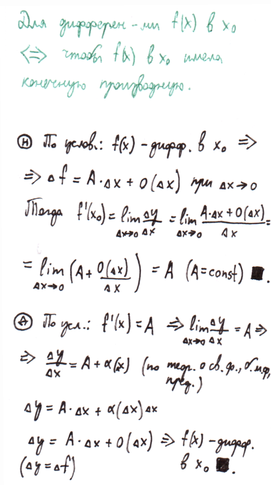 Для дифферен-ти f(x) в x₀
⟺ чтобы f(x) в x₀ имела
конечную производную.
Ⓗ По услов.: f(x) - дифф. в x₀ ⇒
⇒ Δf = A·Δx + O(Δx) при Δx→0
Тогда f'(x₀) = lim_{Δx→0} Δy/Δx = lim_{Δx→0} (A·Δx + O(Δx))/Δx =
= lim_{Δx→0} (A + O(Δx)/Δx) = A (A=const) ■.
Ⓓ По усл.: f'(x) = A ⇒ lim_{Δx→0} Δy/Δx = A ⇒
⇒ Δy/Δx = A + α(x) (по теор. о св. ф.,
пред.)
Δy = A·Δx + α(Δx)Δx
Δy = A·Δx + O(Δx) ⇒ f(x) - дифф.
(Δy = Δf) в x₀ ■.